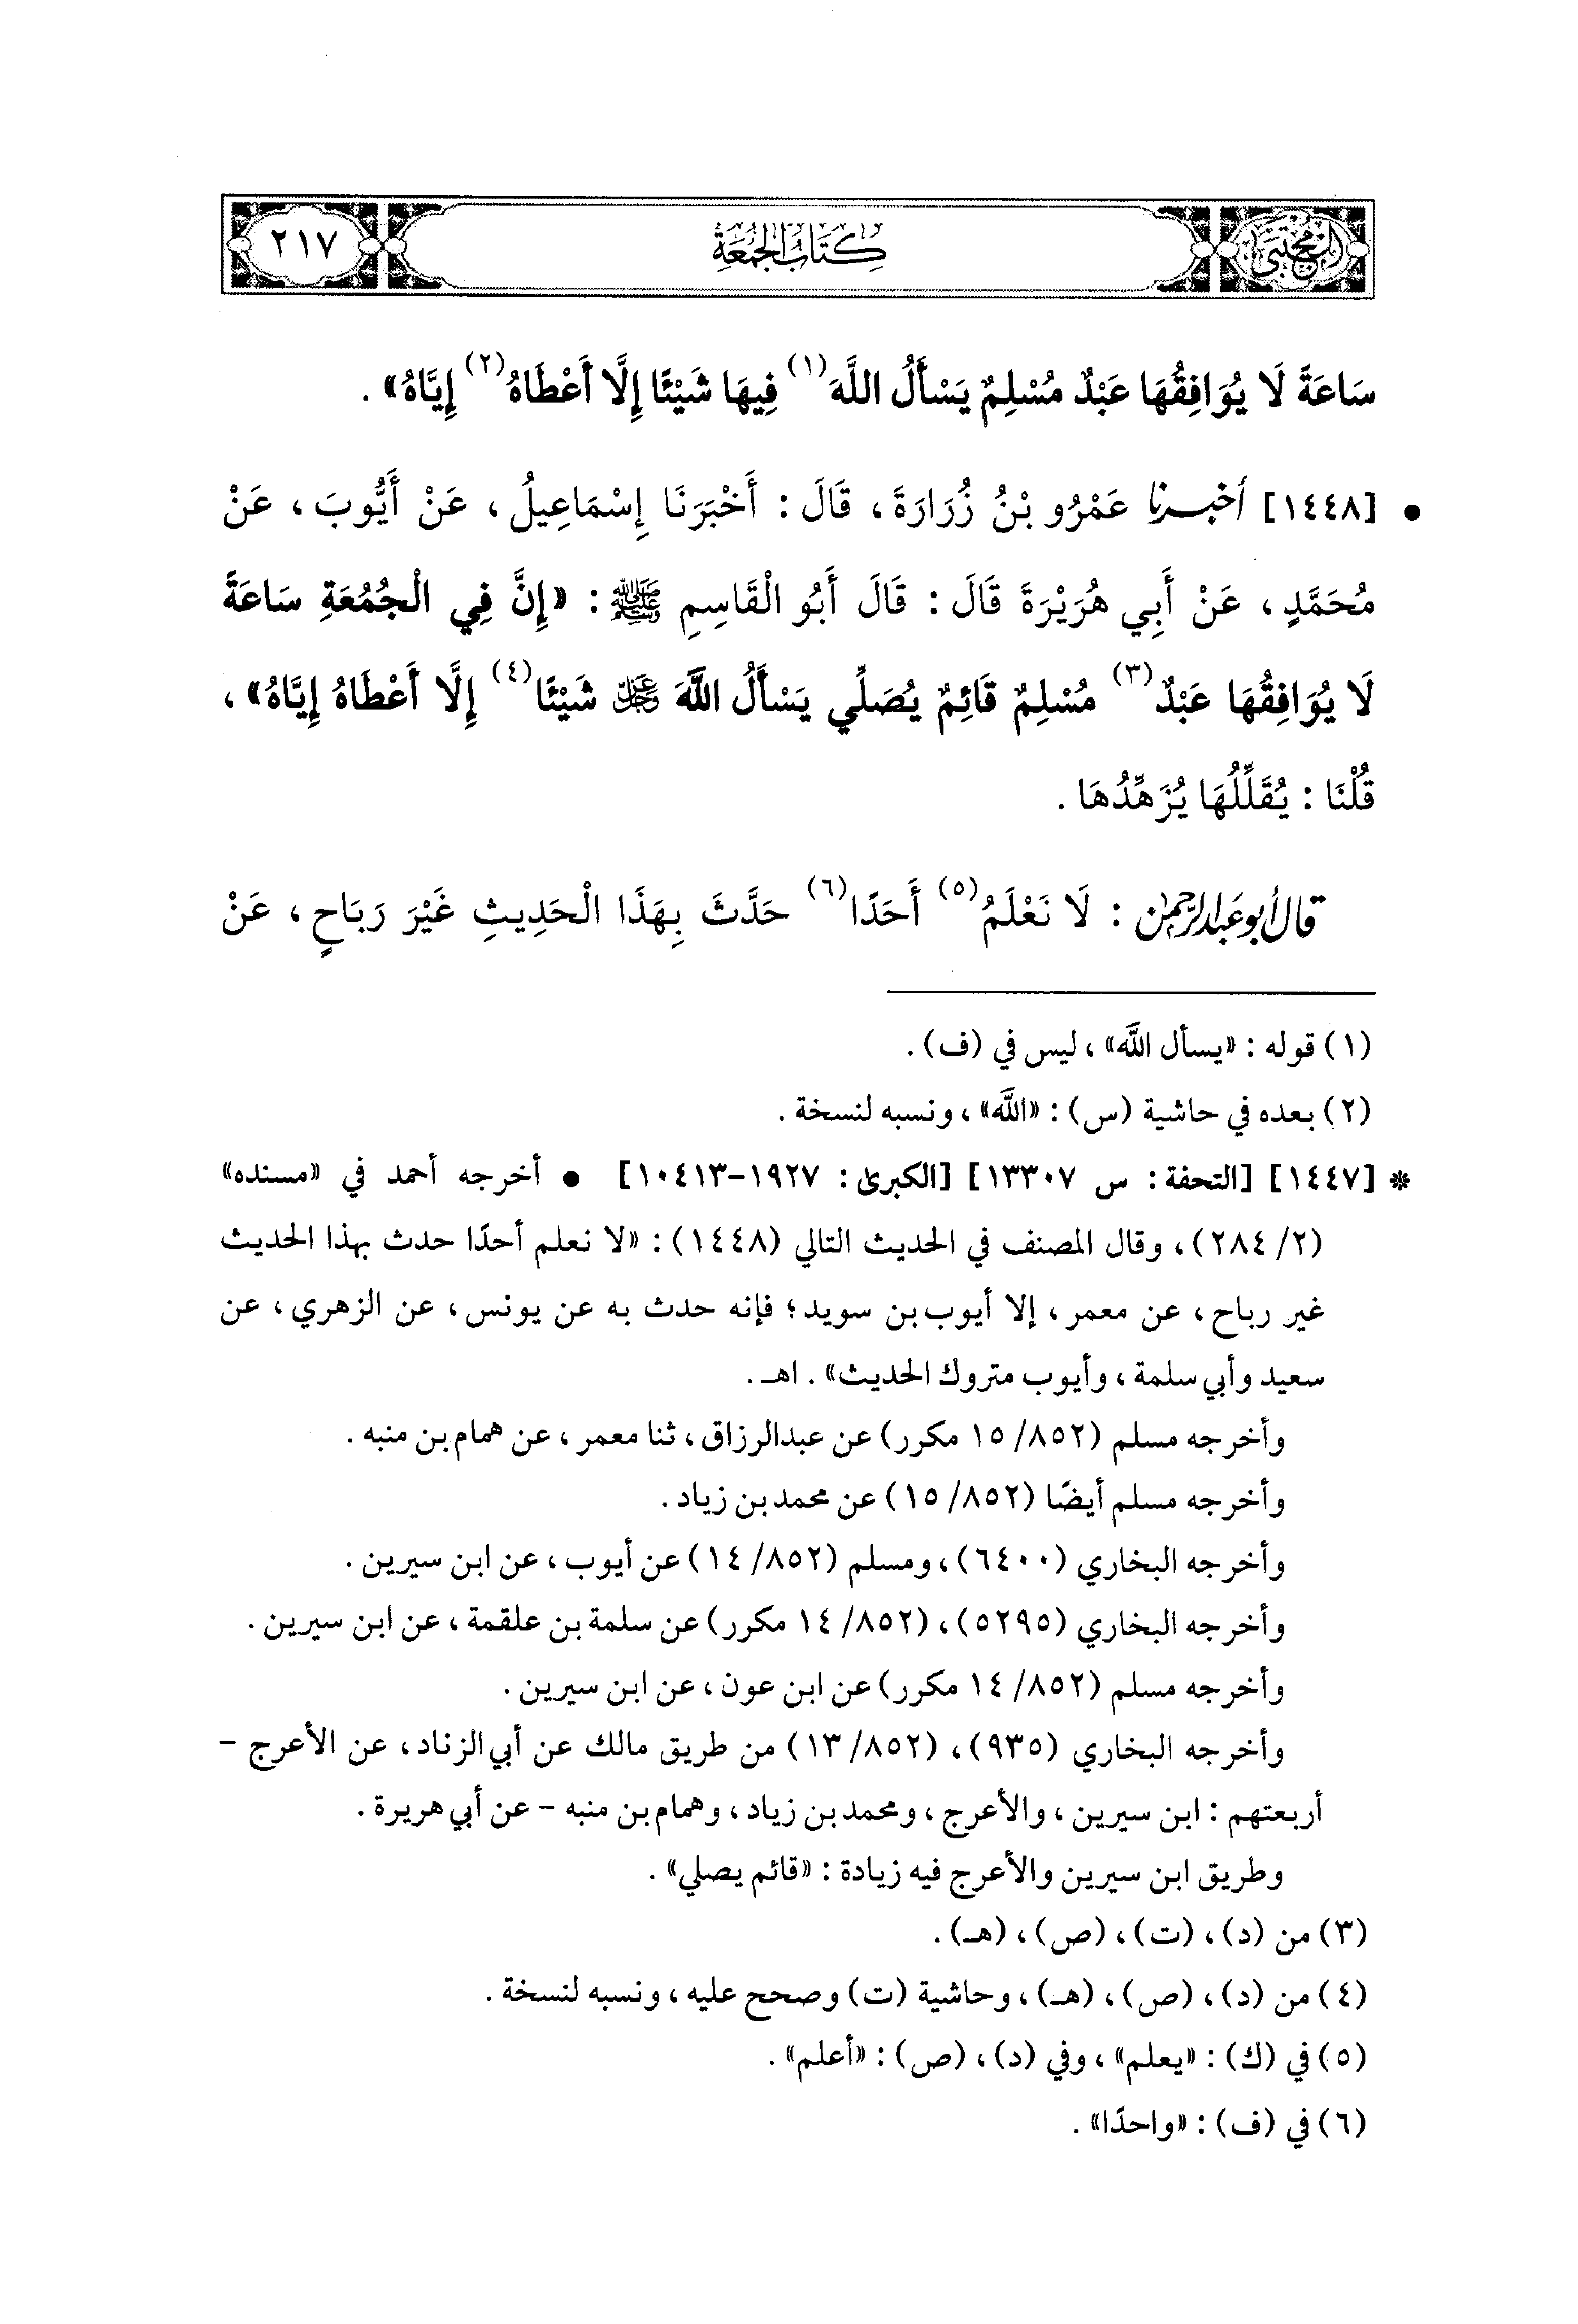 المجتبى
كتاب الجمعة
٢١٧
سَاعَةً لَا يُوَافِقُهَا عَبْدٌ مُسْلِمٌ يَسْأَلُ اللَّهَ(١) فِيهَا شَيْئًا إِلَّا أَعْطَاهُ(٢) إِيَّاهُ» .
• [١٤٤٨] أخبرنا عَمْرُو بْنُ زُرَارَةَ ، قَالَ : أَخْبَرَنَا إِسْمَاعِيلُ ، عَنْ أَيُّوبَ ، عَنْ
مُحَمَّدٍ ، عَنْ أَبِي هُرَيْرَةَ قَالَ : قَالَ أَبُو الْقَاسِمِ ﷺ : «إِنَّ فِي الْجُمُعَةِ سَاعَةً
لَا يُوَافِقُهَا عَبْدٌ(٣) مُسْلِمٌ قَائِمٌ يُصَلِّي يَسْأَلُ اللَّهَ عَزَّ وَجَلَّ شَيْئًا(٤) إِلَّا أَعْطَاهُ إِيَّاهُ» ،
قُلْنَا : يُقَلِّلُهَا يُزَهِّدُهَا .
قال أبو عبد الرحمن : لَا نَعْلَمُ(٥) أَحَدًا(٦) حَدَّثَ بِهَذَا الْحَدِيثِ غَيْرَ رَبَاحٍ ، عَنْ
(١) قوله : «يسأل اللَّه» ، ليس في (ف) .
(٢) بعده في حاشية (س) : «اللَّه» ، ونسبه لنسخة .
* [١٤٤٧] [التحفة : س ١٣٣٠٧] [الكبرى : ١٩٢٧-١٠٤١٣] • أخرجه أحمد في «مسنده»
(٢/ ٢٨٤) ، وقال المصنف في الحديث التالي (١٤٤٨) : «لا نعلم أحدًا حدث بهذا الحديث
غير رباح ، عن معمر ، إلا أيوب بن سويد ؛ فإنه حدث به عن يونس ، عن الزهري ، عن
سعيد وأبي سلمة ، وأيوب متروك الحديث» . اهـ .
وأخرجه مسلم (٨٥٢/ ١٥ مكرر) عن عبدالرزاق ، ثنا معمر ، عن همام بن منبه .
وأخرجه مسلم أيضًا (٨٥٢/ ١٥) عن محمد بن زياد .
وأخرجه البخاري (٦٤٠٠) ، ومسلم (٨٥٢/ ١٤) عن أيوب ، عن ابن سيرين .
وأخرجه البخاري (٥٢٩٥) ، (٨٥٢/ ١٤ مكرر) عن سلمة بن علقمة ، عن ابن سيرين .
وأخرجه مسلم (٨٥٢/ ١٤ مكرر) عن ابن عون ، عن ابن سيرين .
وأخرجه البخاري (٩٣٥) ، (٨٥٢/ ١٣) من طريق مالك عن أبي الزناد ، عن الأعرج -
أربعتهم : ابن سيرين ، والأعرج ، ومحمد بن زياد ، وهمام بن منبه - عن أبي هريرة .
وطريق ابن سيرين والأعرج فيه زيادة : «قائم يصلي» .
(٣) من (د) ، (ت) ، (ص) ، (هـ) .
(٤) من (د) ، (ص) ، (هـ) ، وحاشية (ت) وصحح عليه ، ونسبه لنسخة .
(٥) في (ك) : «يعلم» ، وفي (د) ، (ص) : «أعلم» .
(٦) في (ف) : «واحدًا» .